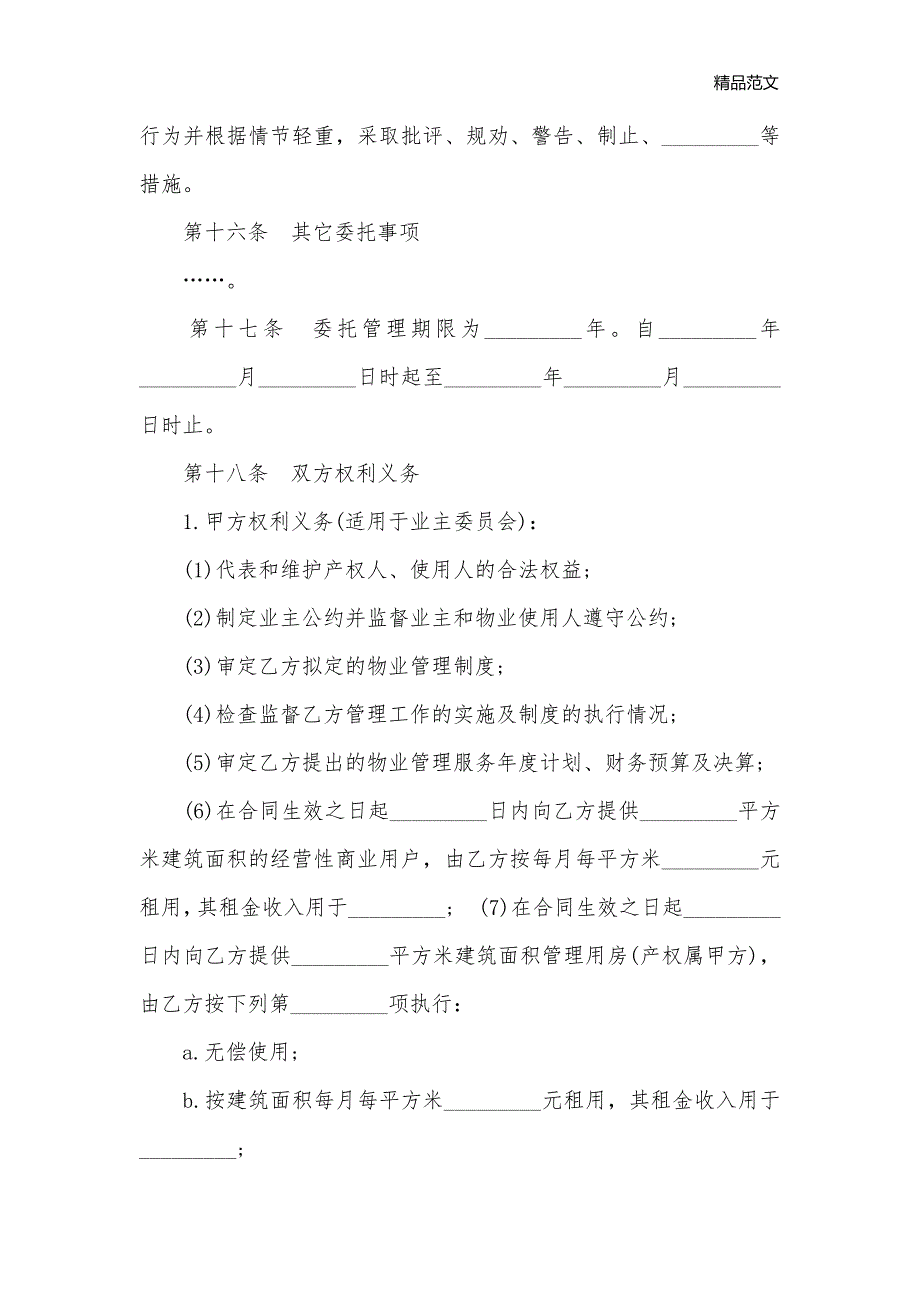 精品范文
行为并根据情节轻重，采取批评、规劝、警告、制止、_________等
措施。
第十六条　其它委托事项
……。
第十七条　委托管理期限为_________年。自_________年
_________月_________日时起至_________年_________月_________
日时止。
第十八条　双方权利义务
1.甲方权利义务(适用于业主委员会)：
(1)代表和维护产权人、使用人的合法权益；
(2)制定业主公约并监督业主和物业使用人遵守公约；
(3)审定乙方拟定的物业管理制度；
(4)检查监督乙方管理工作的实施及制度的执行情况；
(5)审定乙方提出的物业管理服务年度计划、财务预算及决算；
(6)在合同生效之日起_________日内向乙方提供_________平方
米建筑面积的经营性商业用户，由乙方按每月每平方米_________元
租用，其租金收入用于_________； (7)在合同生效之日起_________
日内向乙方提供_________平方米建筑面积管理用房(产权属甲方)，
由乙方按下列第_________项执行：
a.无偿使用；
b.按建筑面积每月每平方米_________元租用，其租金收入用于
_________；